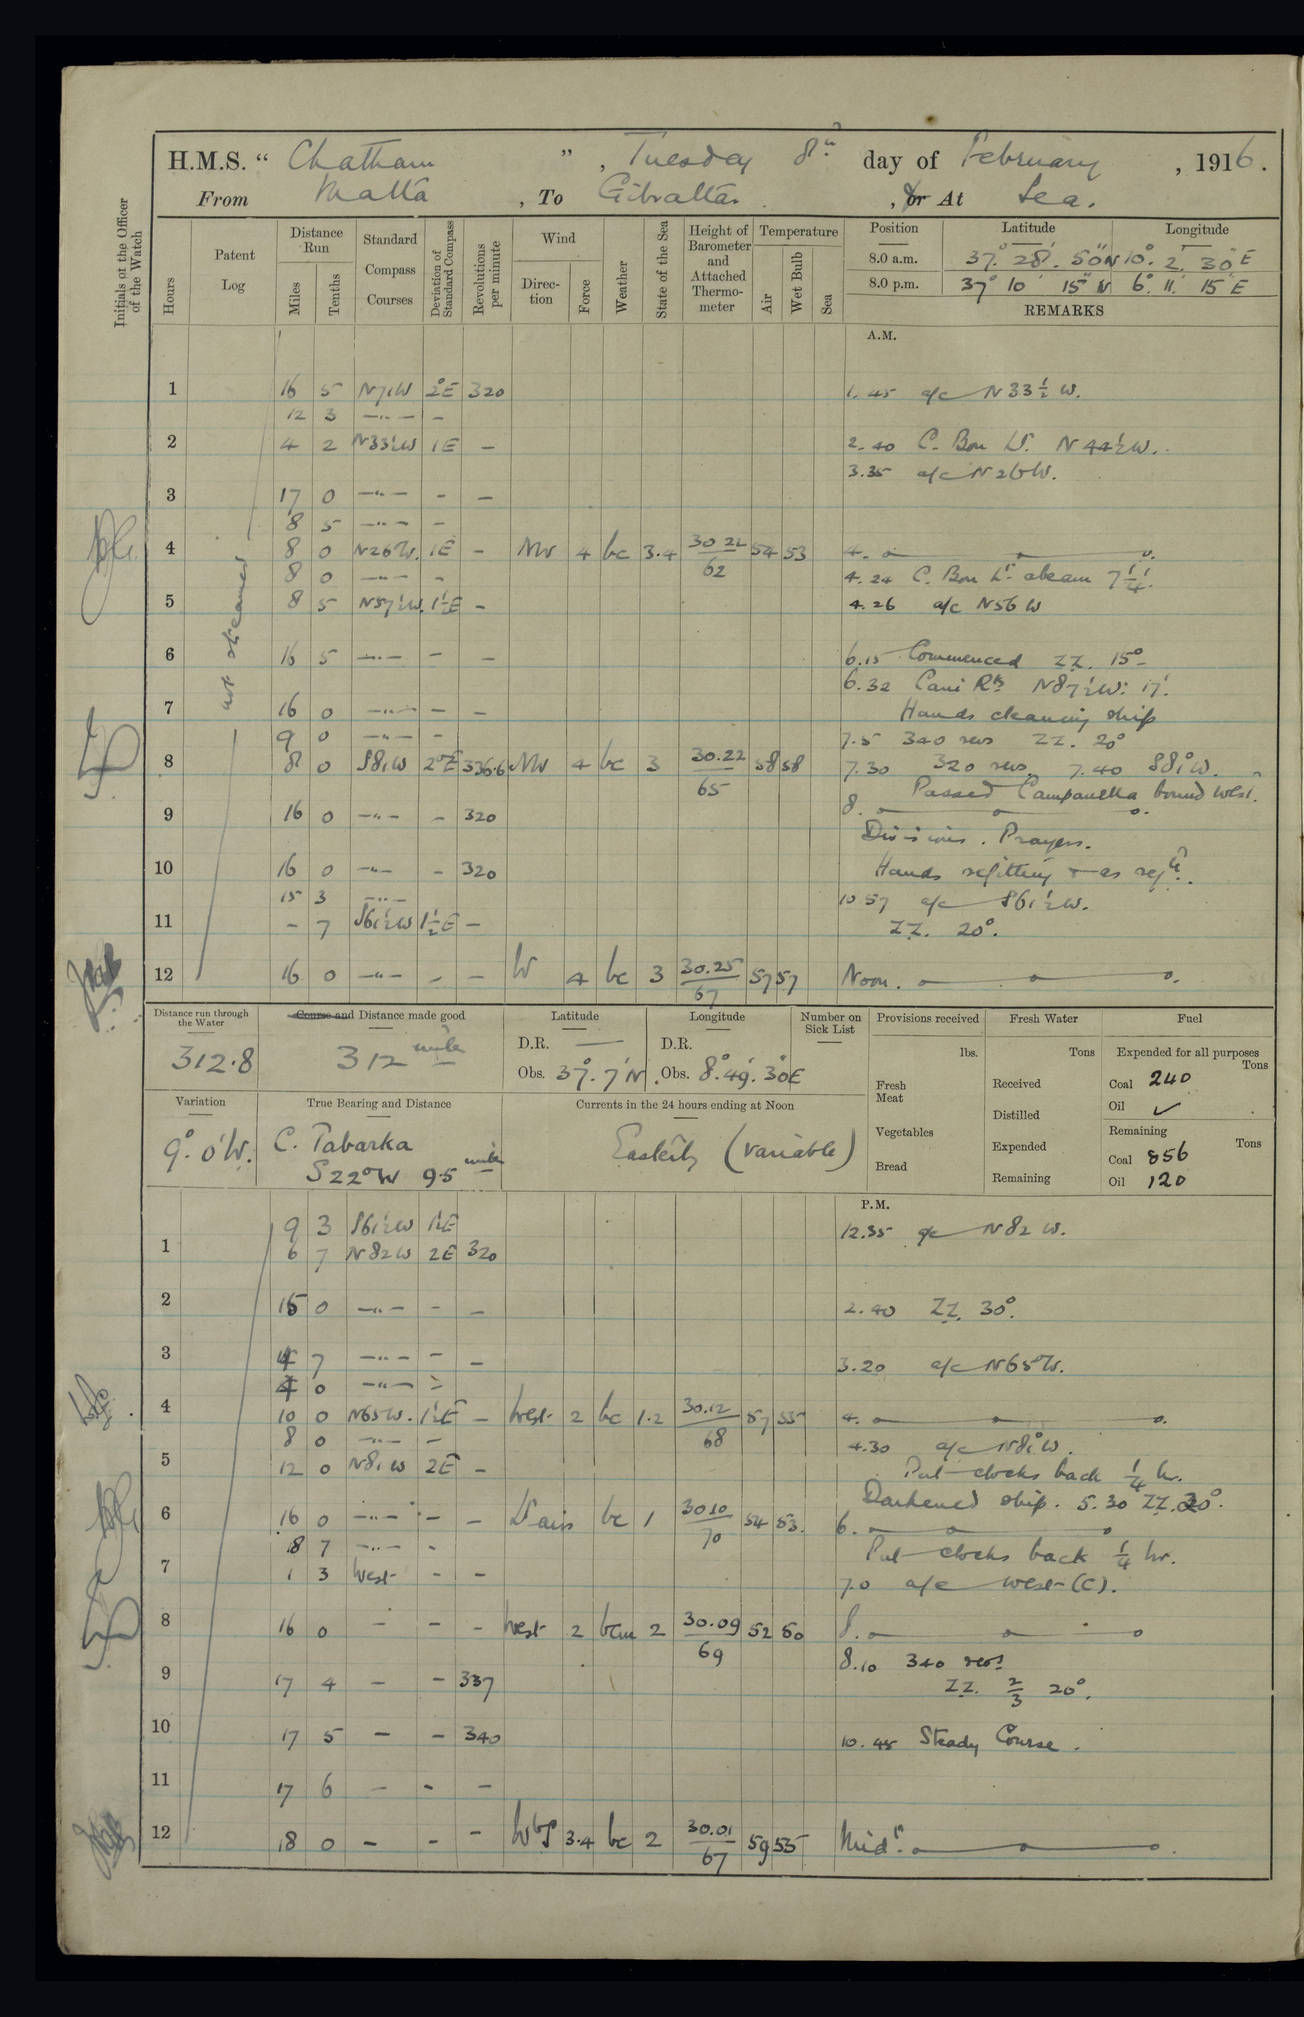 H.M.S. “ Chatham ” , Tuesday 8th day of February , 1916.
From Malta , To Gibraltar , or At Sea.
Initials of the Officer of the Watch
Hours
Patent Log
Distance Run
Miles
Tenths
Standard Compass Courses
Deviation of Standard Compass
Revolutions per minute
Wind
Direction
Force
Weather
State of the Sea
Height of Barometer and Attached Thermometer
Temperature
Air
Wet Bulb
Sea
Position Latitude Longitude
8.0 a.m. 37° 28' 50" N 10° 2' 30" E
8.0 p.m. 37° 10' 15" N 6° 11' 15" E
REMARKS
A.M.
not streamed
1 16 5 N71W 2°E 320 1.45 a/c N33½W.
12 3 —"— –
2 4 2 N33½W 1E – 2.40 C. Bon Lt. N44½W.
3.35 a/c N26W.
3 17 0 —"— – –
8 5 —"— –
4 8 0 N26W. 1E – NW 4 bc 3.4 30.22/62 54 53 4.
8 0 —"— – 4.24 C. Bon Lt. abeam 7¼'.
5 8 5 N57½W. 1½E – 4.26 a/c N56W
6 16 5 —"— – – 6.15 Commenced ZZ. 15°
6.32 Cani Rks N87½W: 17'.
7 16 0 —"— – – Hands cleaning ship
9 0 —"— – 7.5 340 revs ZZ. 20°
8 8 0 S81W 2°E 336.6 NW 4 bc 3 30.22/65 58 58 7.30 320 revs. 7.40 S81°W.
Passed Campanella bound West.
8.
9 16 0 —"— – 320
Divisions. Prayers.
10 16 0 —"— – 320 Hands refitting & as reqd.
15 3 —"— 10.57 a/c S61½W.
11 – 7 S61½W 1½E – ZZ. 20°.
12 16 0 —"— – – W 4 bc 3 30.25/67 57 57 Noon.
Distance run through the Water
312.8
Course and Distance made good
312 miles
Latitude
D.R. —
Obs. 37° 7' N.
Longitude
D.R.
Obs. 8° 49' 30" E
Number on Sick List
Provisions received
lbs.
Fresh Meat
Vegetables
Bread
Fresh Water
Tons
Received
Distilled
Expended
Remaining
Fuel
Expended for all purposes
Tons
Coal 240
Oil ✓
Remaining
Tons
Coal 856
Oil 120
Variation
9° 0' W.
True Bearing and Distance
C. Tabarka
S22°W 9.5 miles
Currents in the 24 hours ending at Noon
Easterly (variable)
P.M.
9 3 S61½W 1½E 12.35 a/c N82W.
1 6 7 N82W 2E 320
2 15 0 —"— – – 2.40 ZZ. 30°.
3 4 7 —"— – – 3.20 a/c N65W.
4 0 —"— –
4 10 0 N65W. 1½E – West 2 bc 1.2 30.12/68 57 55 4.
8 0 —"— – 4.30 a/c N81°W.
5 12 0 N81W 2E – Put clocks back ¼ hr.
Darkened ship. 5.30 ZZ. 20°.
6 16 0 —"— – – Lt airs bc 1 30.10/70 54 53. 6.
8 7 —"— – Put clocks back ¼ hr.
7 1 3 West – – 7.0 a/c West (C).
8 16 0 – – – West 2 bcm 2 30.09/69 52 50 8.
8.10 340 revs
9 17 4 – – 337 ZZ. 2/3 20°.
10 17 5 – – 340 10.45 Steady Course.
11 17 6 – – –
12 18 0 – – – WbS 3.4 bc 2 30.01/67 59 55 Midt.